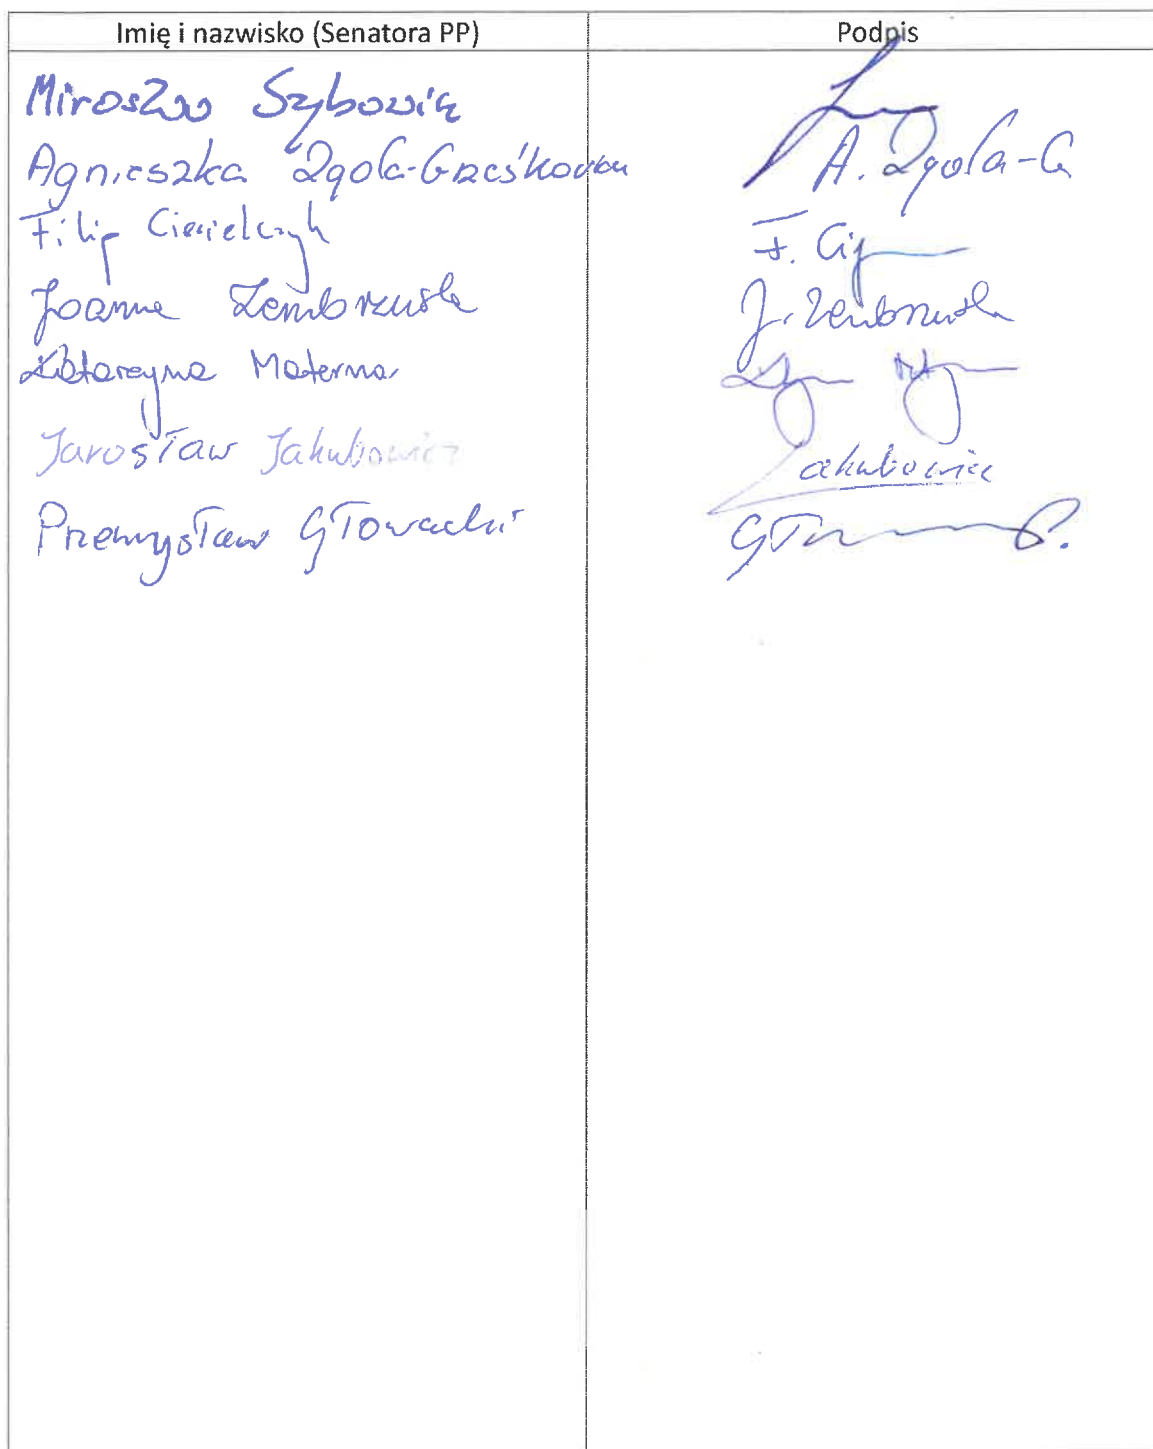 Imię i nazwisko (Senatora PP) Podpis
Mirosław Szybowicz
Agnieszka Zgoła-Grześkowiak A. Zgoła-G
Filip Ciesielczyk F. Ci
Joanna Zembrzuska J. Zembrzuska
Katarzyna Materna
Jarosław Jakubowicz Jakubowicz
Przemysław Głowacki